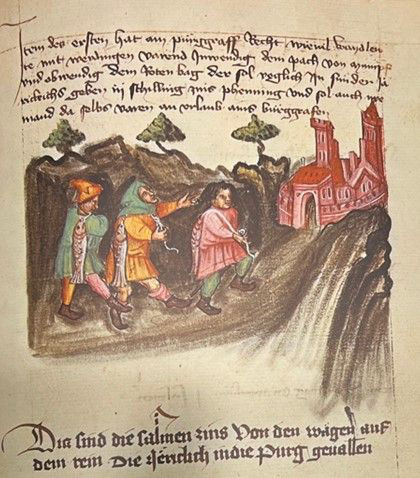 Item des ersten hat ain pürggraff Recht wievil wandlen
te mit werdingen varend Inwendig dem pach von
und abwendig dem Roten bag der sol yeglich In sunder Jä
geben iij schilling zins phenning und sol auch nie
mand da selbs varen an urlaub ains burggrafen
Dia sind die salmen zins Von den wagen auf
dem rein Die Järlich in die Purg gevallen